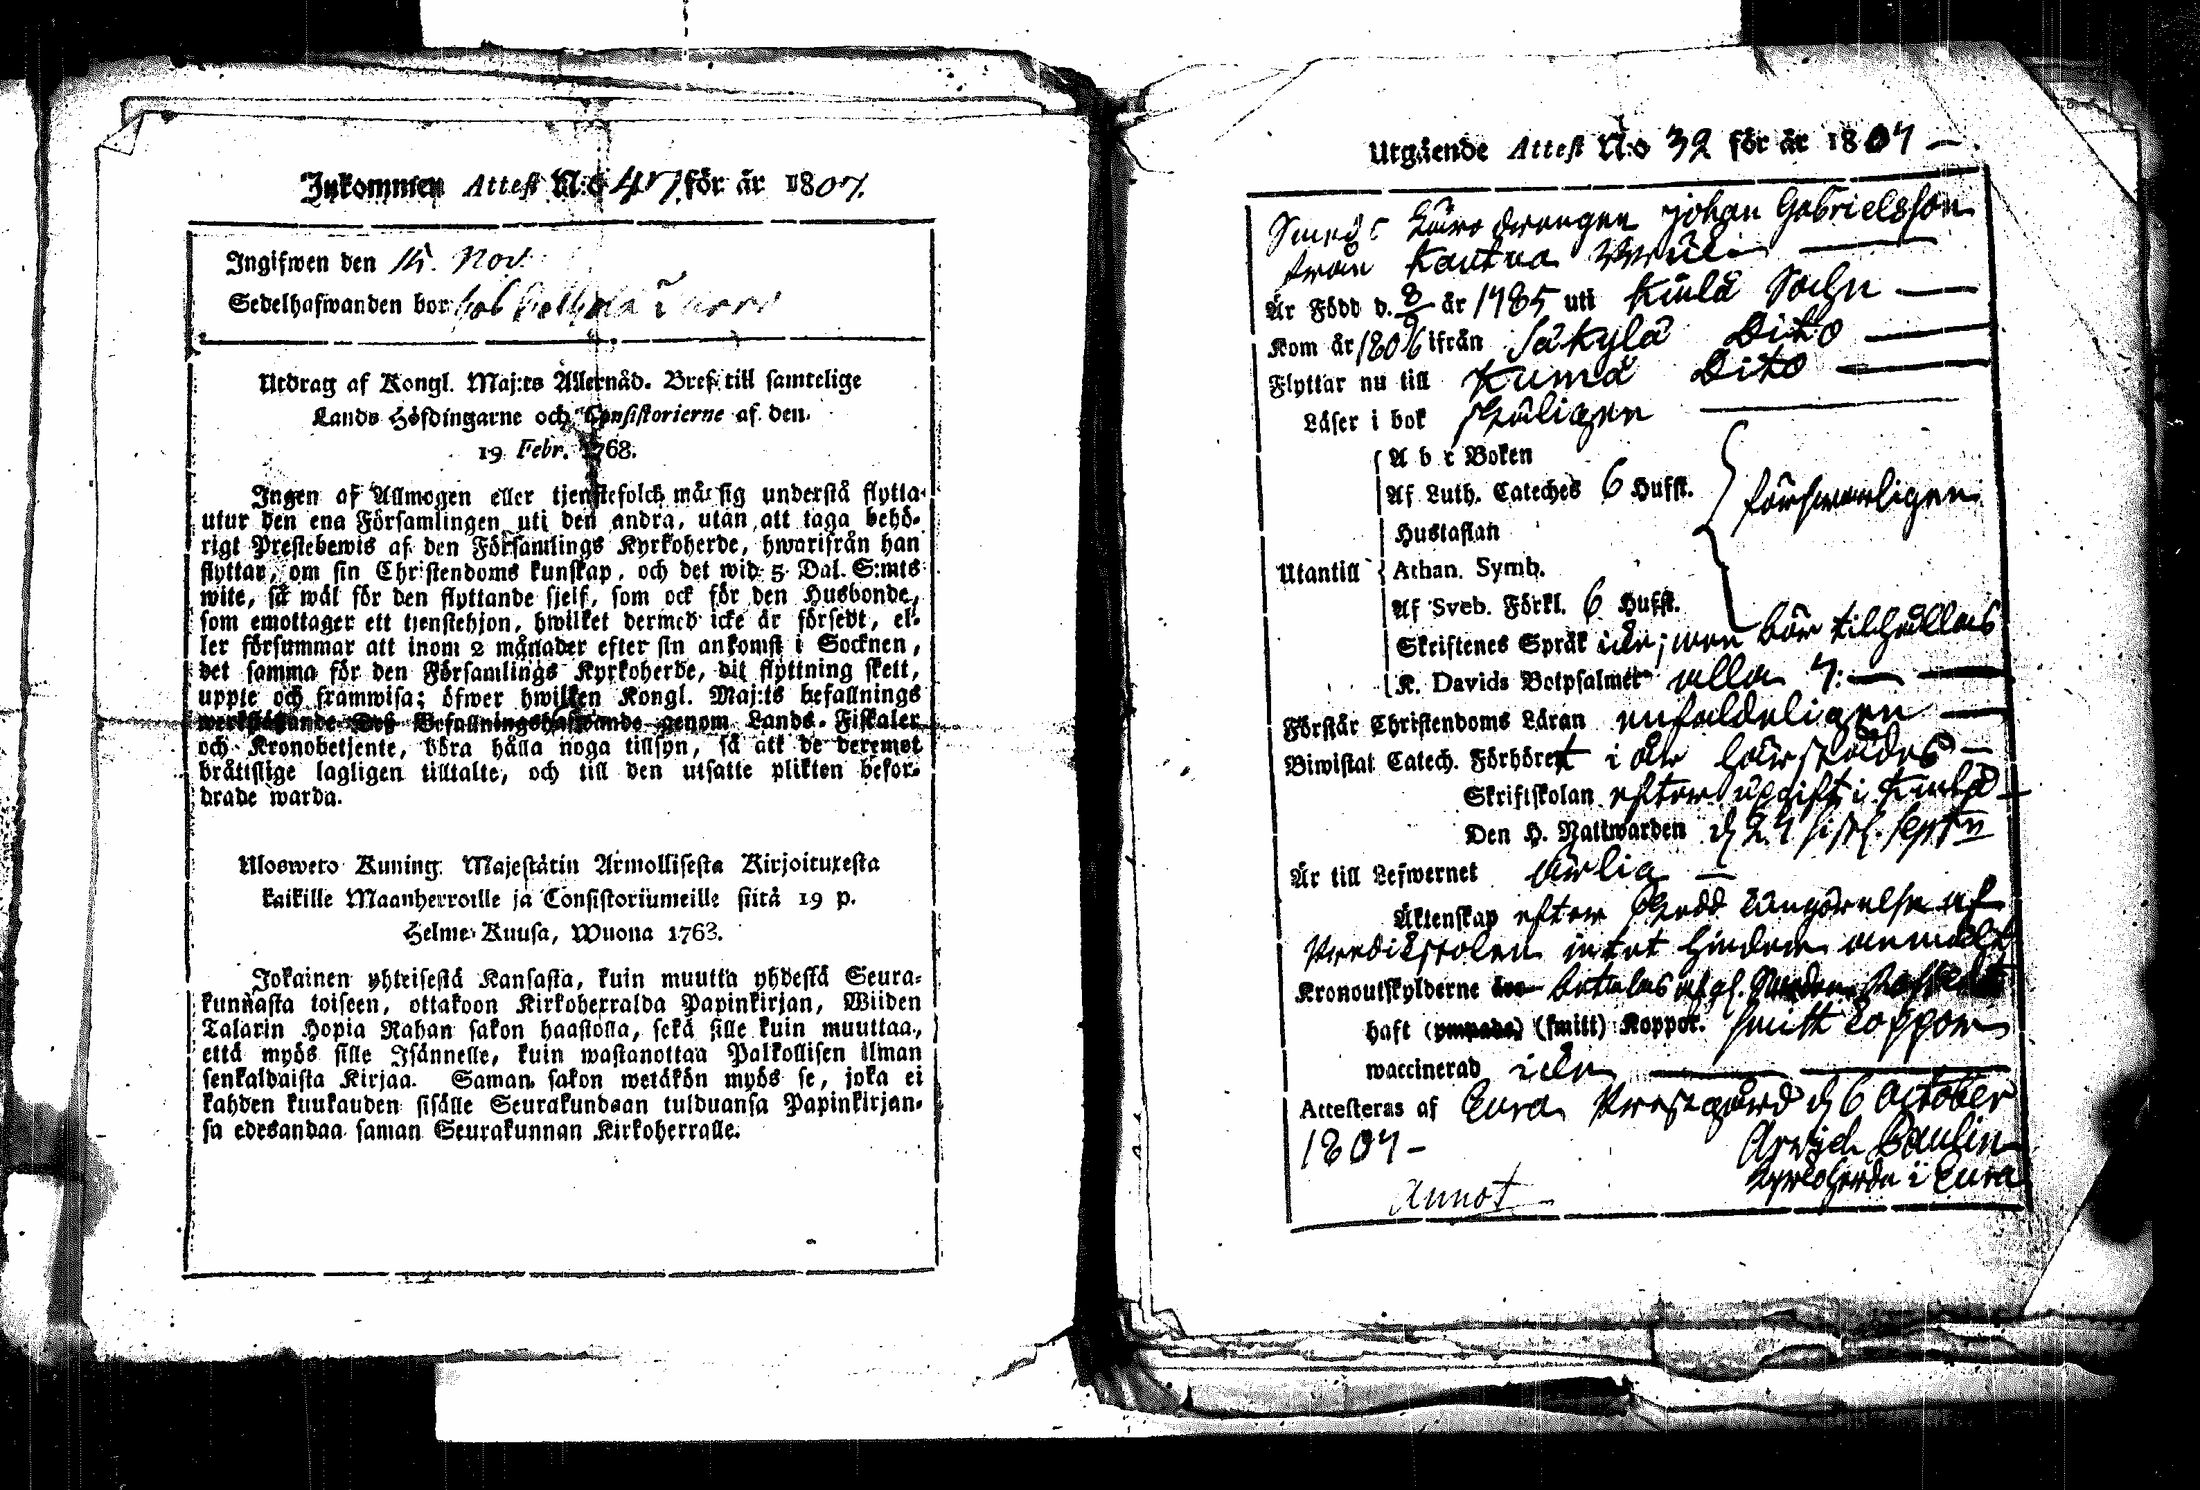 Inkommen Attest N:o 47 för år 1807.
Ingifwen den 15. Nov.
Sedelhafwanden bor hos
Utdrag af Kongl. Maj:ts Allernåd. Bref till samtelige
Lands Höfdingarne och Consistorierne af den
19 Febr. 1768.
Ingen af Allmogen eller tjenstefolck må sig understå flytta
utur den ena Församlingen uti den andra, utan att taga behö-
rigt Prestebewis af den Församlings Kyrkoherde, hwarifrån han
flyttar, om sin Christendoms kunskap, och det wid 5 Dal. S:mts
wite, så wäl för den flyttande sjelf, som ock för den Husbonde,
som emottager ett tjenstehjon, hwilket dermed icke är försedt, el-
ler försummar att inom 2 månader efter sin ankomst i Socknen,
det samma för den Församlings Kyrkoherde, dit flyttning skett,
uppte och framwisa; öfwer hwilken Kongl. Maj:ts befallnings
werkställande Des Befallningshafwande genom Lands-Fiskaler
och Kronobetjente, böra hålla noga tillsyn, så att de deremot
bråttslige lagligen tilltalte, och till den utsatte plikten befor-
drade warda.
Uloswero Kuning. Majestätin Armollisesta Kirjoituxesta
kaikille Maanherroille ja Consistoriumeille siitä 19 p.
Helme-Kuusa, Wuona 1763.
Jokainen yhteisestä Kansasta, kuin muutta yhdestä Seura-
kunnasta toiseen, ottakoon Kirkoherralda Papinkirjan, Wiiden
Talarin Hopia Rahan sakon haastolla, sekä sille kuin muuttaa,
että myös sille Isännelle, kuin wastanottaa Palkollisen ilman
senkaldaista Kirjaa. Saman sakon wetäkön myös se, joka ei
kahden kuukauden sisälle Seurakundaan tulduansa Papinkirjan-
sa edesandaa saman Seurakunnan Kirkoherralle.
Utgående Attest N:o 32 för år 1807
Smeds Läro drengen Johan Gabrielsson
från Kautua Bruk
Är Född d. 8/9 år 1785 uti Kiulå Sochn
Kom år 1806 ifrån Säkylä Dito
Flyttar nu till Kumå Dito
Läser i bok skäligen
A b c Boken
Af Luth. Cateches 6 Hufst. försvarligen
Hustaflan
Utantill Athan. Symb.
Af Sveb. Förkl. 6 Hufst.
Skriftenes Språk icke; men bör tilhållas
K. Davids Botpsalmer alla 7:
Förstår Christendoms Läran enfaldeligen
Biwistat Catech. Förhöret i år
Skriftskolan efter upgift i Kiulå
Den H. Nattwarden d. 27 sistl. Sept:
Är till Lefwernet ärlig
Äktenskap efter skedd af
Predikstolen intet hinder anmält
Kronoutskylderne betalas af
haft (smitt) Koppor. smitt koppor
waccinerad icke
Attesteras af Eura Prestgård d. 6 October
1807- Arvid Paulin
Kyrkoherde i Eura
Annot